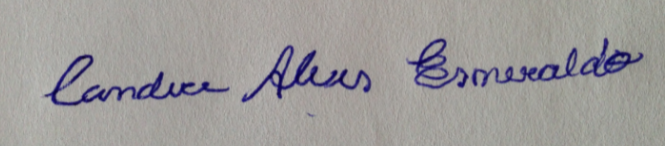 Candice Alexis Esmeraldo